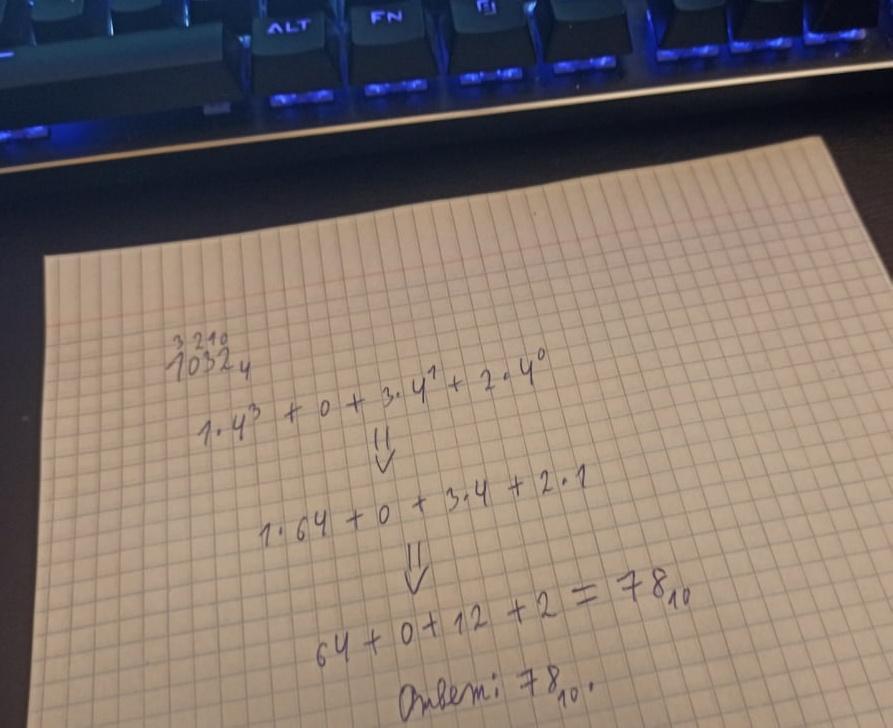 ALT FN
3 2 1 0
1032₄
1·4³ + 0 + 3·4¹ + 2·4⁰
⇓
1·64 + 0 + 3·4 + 2·1
⇓
64 + 0 + 12 + 2 = 78₁₀
Ответ: 78₁₀.